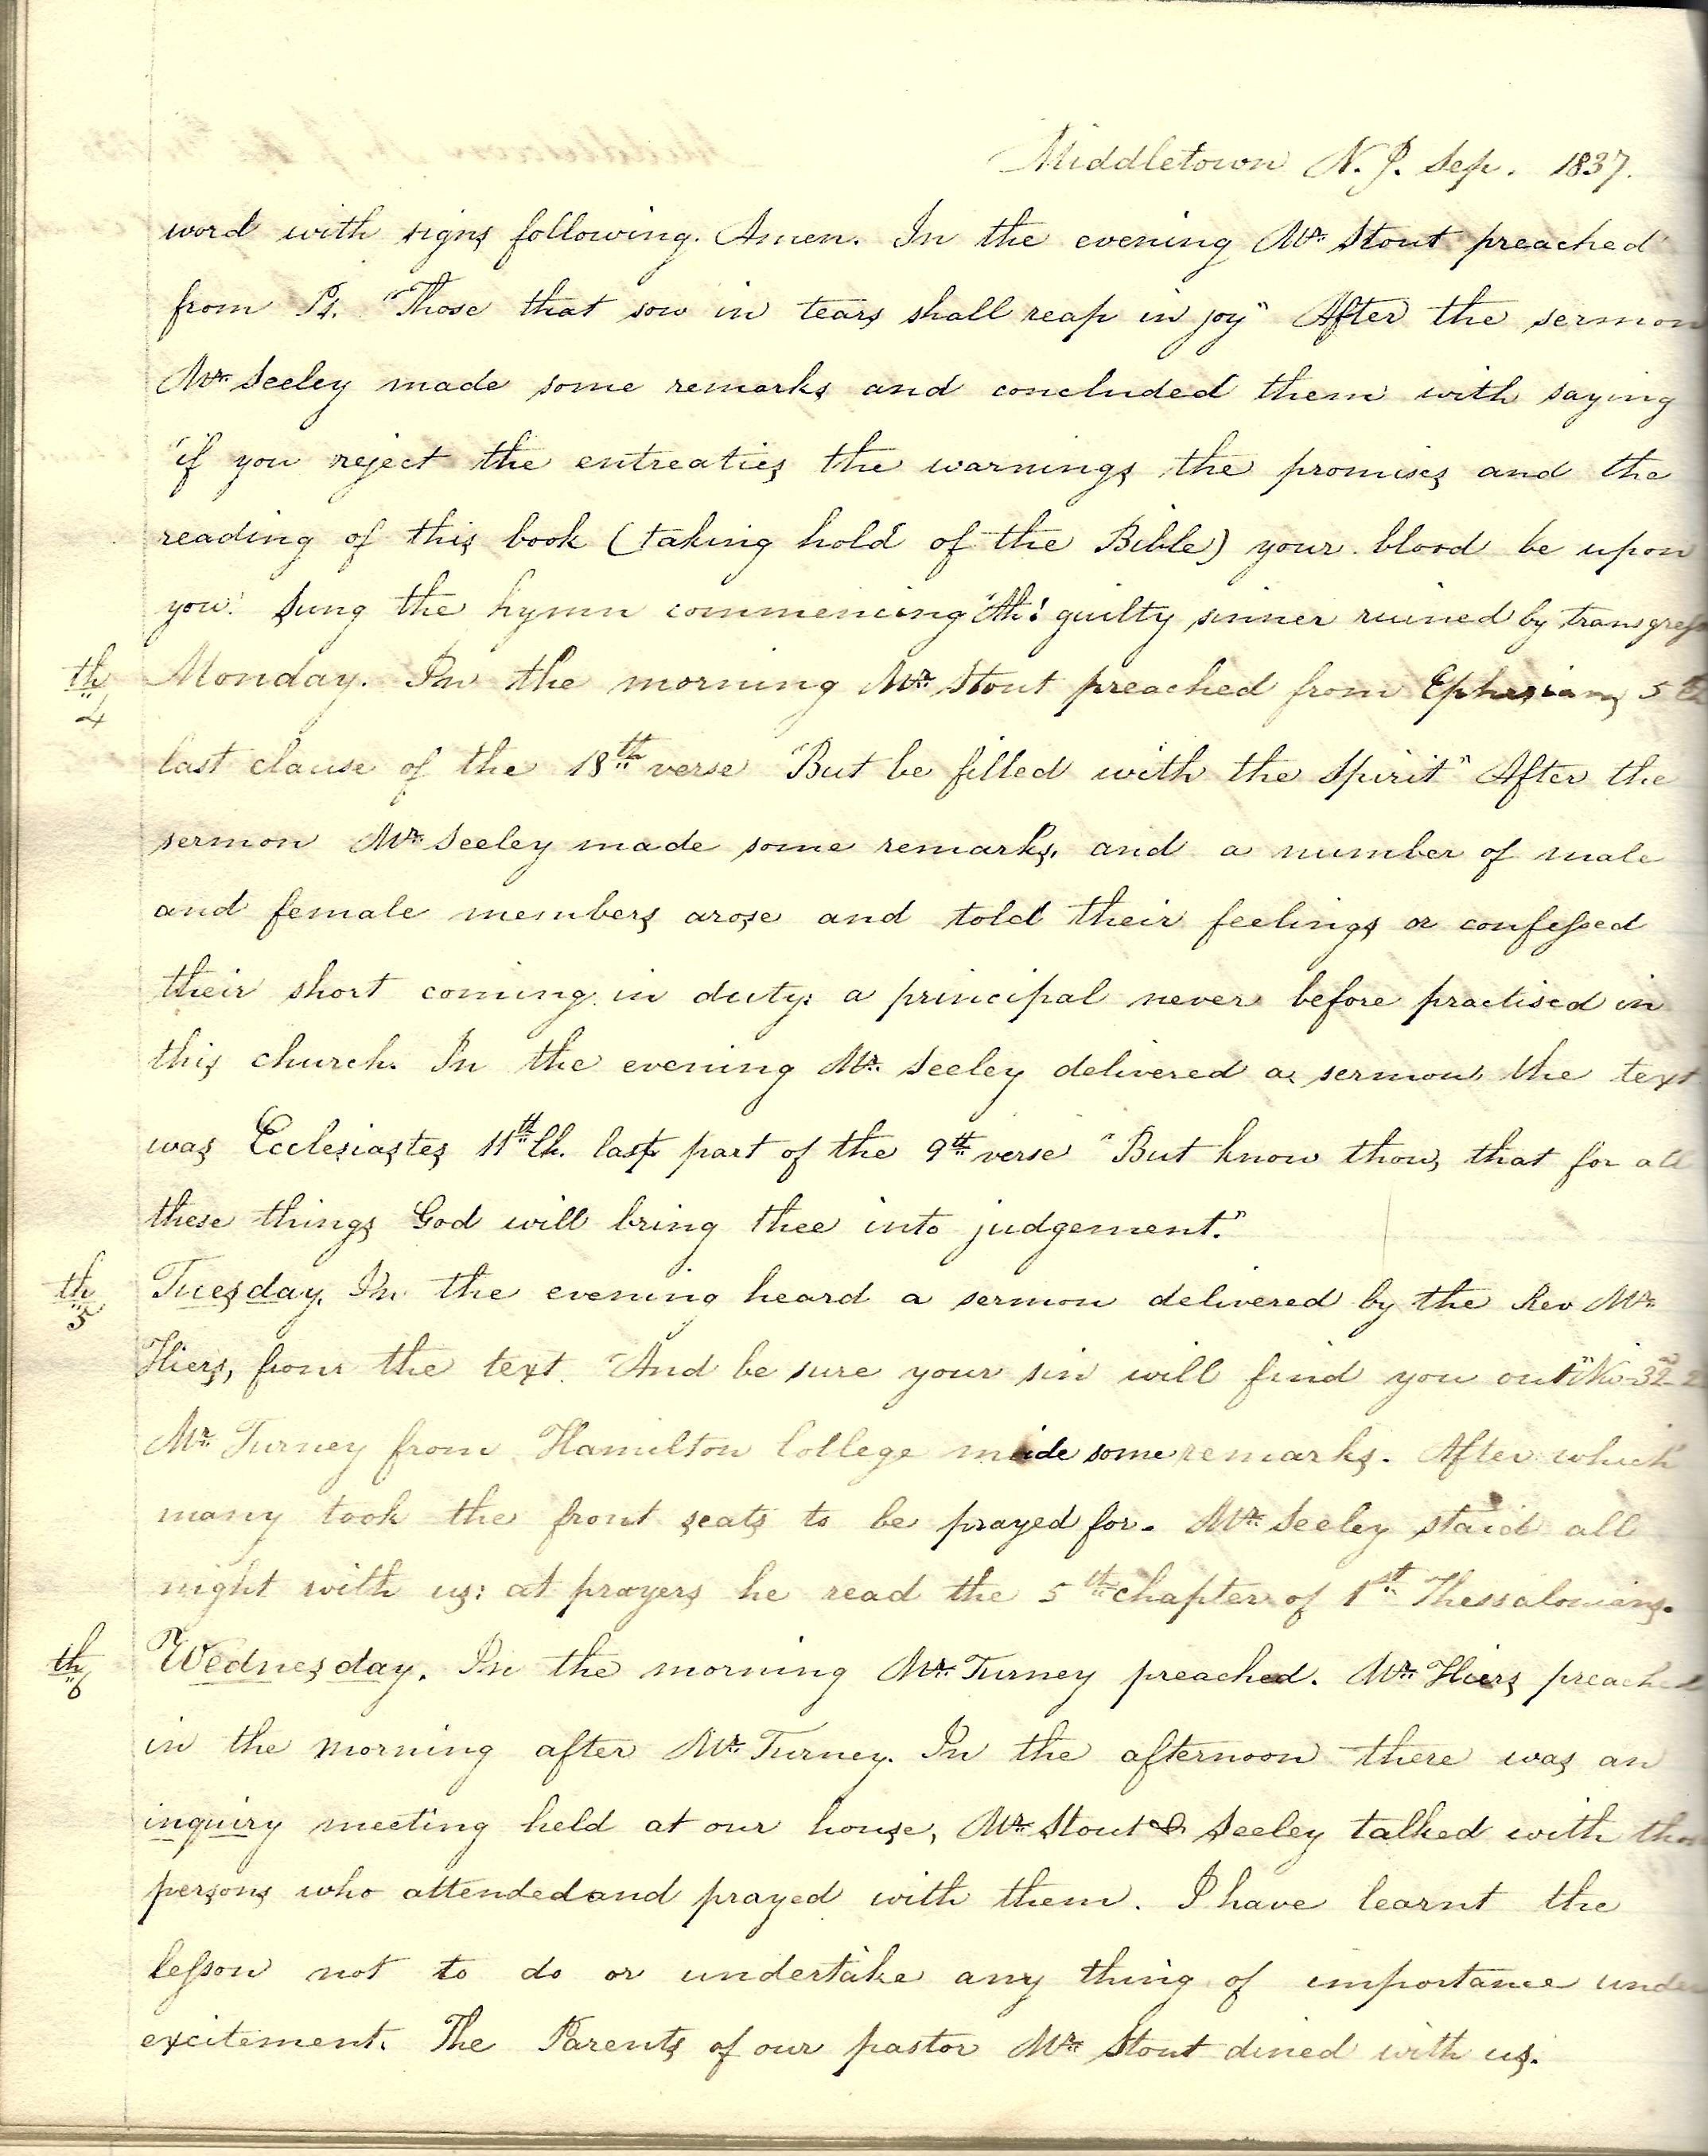 Middletown N. J. Sep. 1837.
word with signs following. Amen. In the evening Mr. Stout preached
from Ps. "Those that sow in tears shall reap in joy" After the sermon
Mr. Seeley made some remarks and concluded them with saying
"if you reject the entreaties the warnings the promises and the
reading of this book (taking hold of the Bible) your blood be upon
you! Sung the hymn commencing "Ah! guilty sinner ruined by transgress
th 4 Monday. In the morning Mr. Stout preached from Ephesians 5th
last clause of the 18th verse "But be filled with the Spirit" After the
sermon Mr. Seeley made some remarks, and a number of male
and female members arose and told their feelings or confessed
their short coming in duty: a principal never before practised in
this church. In the evening Mr. Seeley delivered a sermon, the text
was Ecclesiastes 11th Ch. last part of the 9th verse "But know thou, that for all
these things God will bring thee into judgement."
th 5 Tuesday. In the evening heard a sermon delivered by the Rev Mr.
Hiers, from the text. "And be sure your sin will find you out" 32nd
Mr. Turney from Hamilton College made some remarks. After which
many took the front seats to be prayed for. Mr. Seeley staid all
night with us: at prayers he read the 5th chapter of 1st Thessalonians.
th 6 Wednesday. In the morning Mr. Turney preached. Mr. Hiers preached
in the morning after Mr. Turney. In the afternoon there was an
inquiry meeting held at our house, Mr. Stout & Seeley talked with those
persons who attended and prayed with them. I have learnt the
lesson not to do or undertake any thing of importance under
excitement. The Parents of our pastor Mr. Stout dined with us.